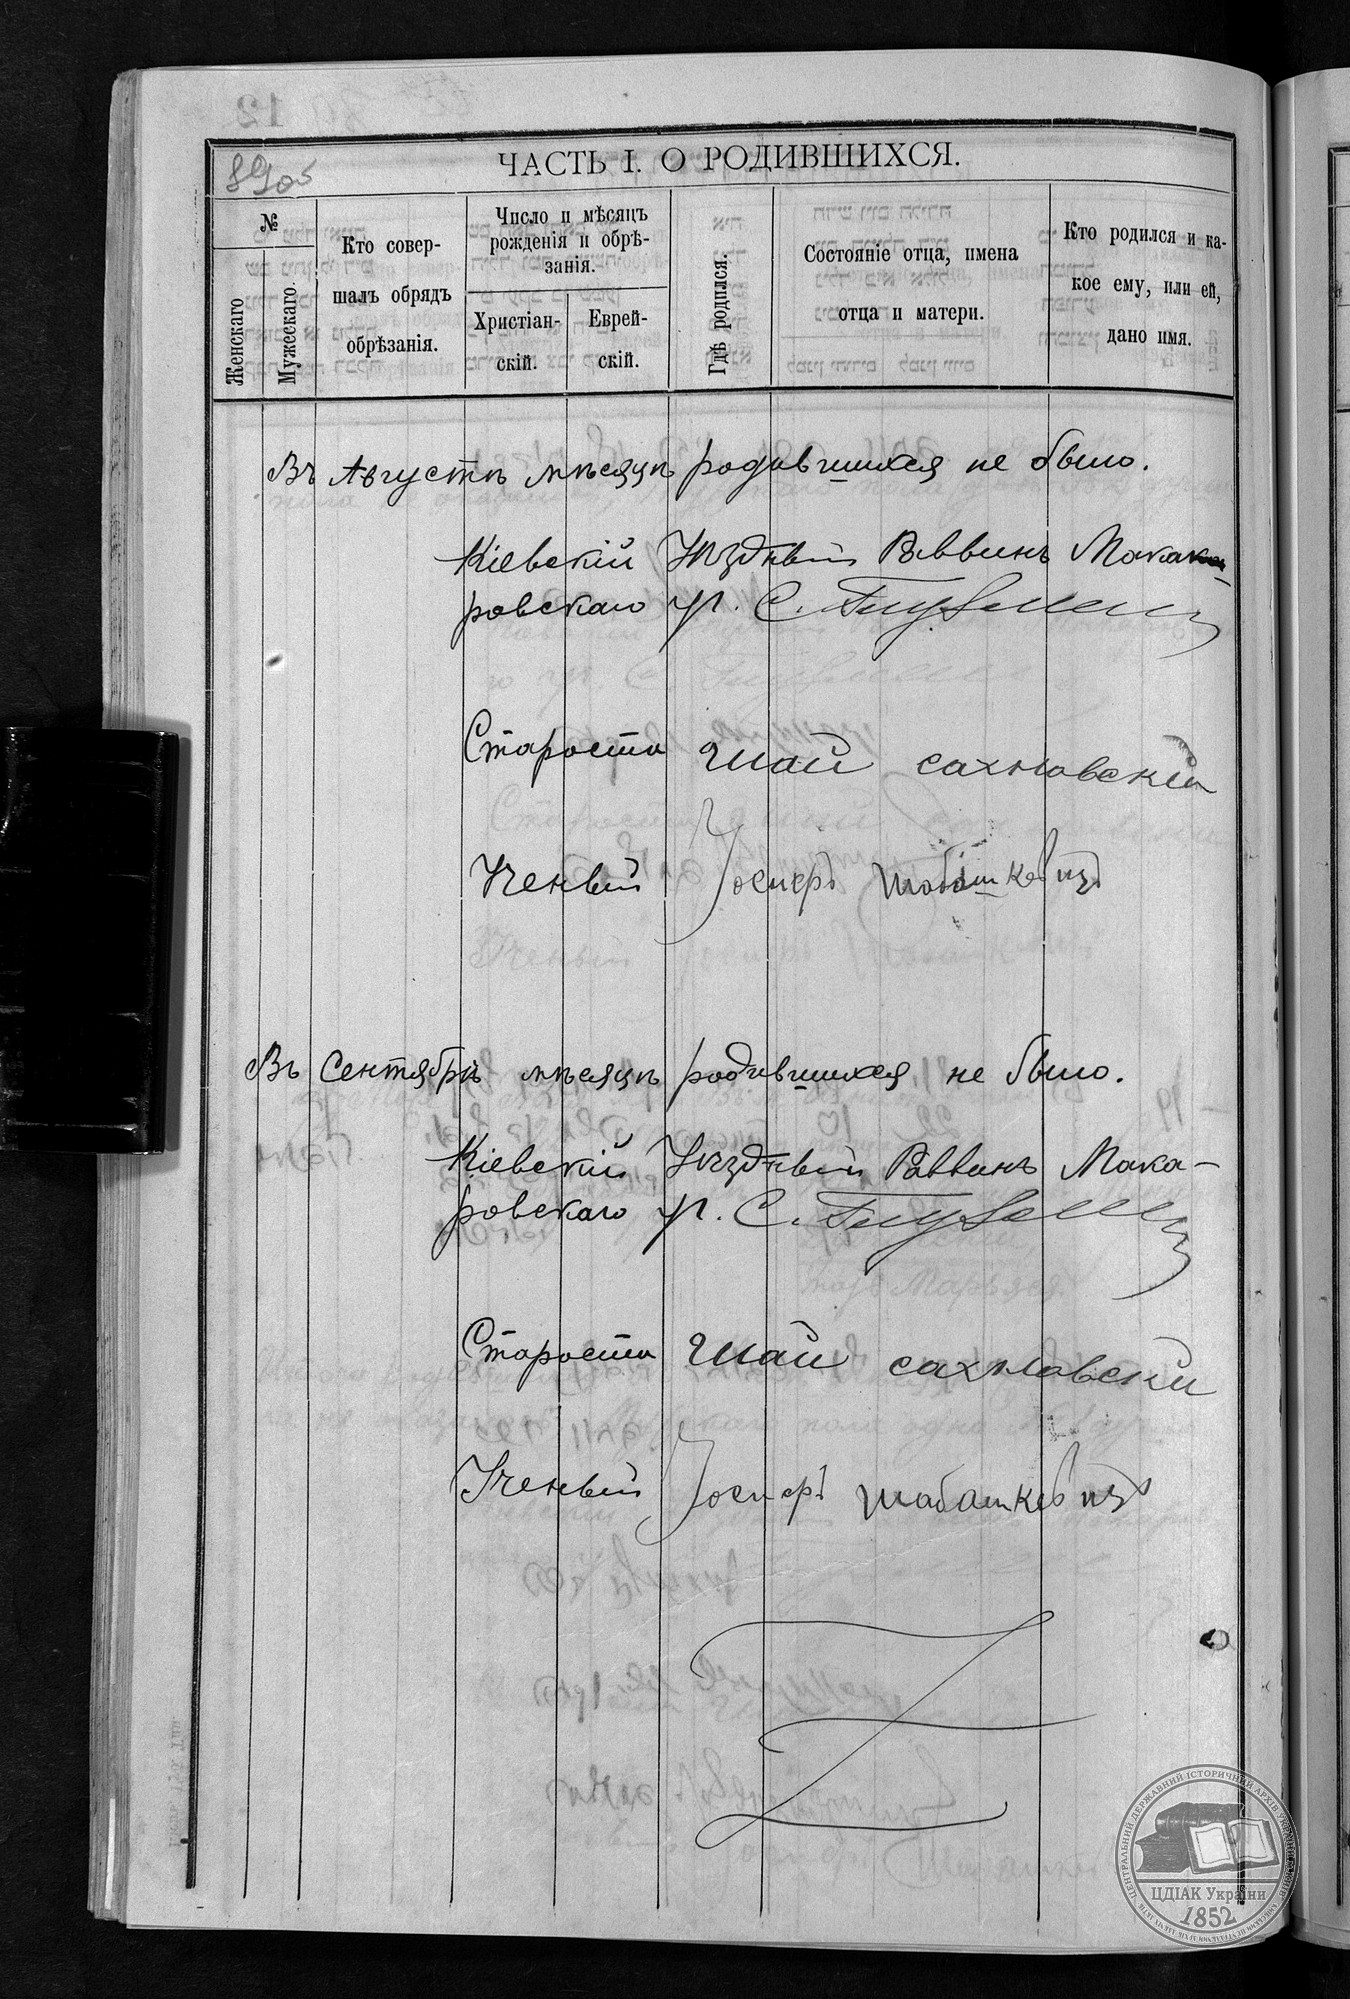 ЧАСТЬ I. О РОДИВШИХСЯ.
№
Женскаго
Мужескаго.
Кто совер-
шалъ обрядъ
обрѣзанія.
Число и мѣсяцъ
рожденія и обрѣ-
занія.
Христіан-
скій.
Еврей-
скій.
Гдѣ родился.
Состояніе отца, имена
отца и матери.
Кто родился и ка-
кое ему, или ей,
дано имя.
Въ Августѣ мѣсяцѣ родившихся не было.
Кіевскій Уѣздный Раввинъ Мака
ровскаго уч. С.
Староста Шай Сахновскій
Ученый Іосифъ Шабашкевичъ
Въ Сентябрѣ мѣсяцѣ родившихся не было.
Кіевскій Уѣздный Раввинъ Мака-
ровскаго уч. С.
Староста Шай Сахновски
Ученый Іосифъ Шабашкевичъ
ЦДІАК України
1852